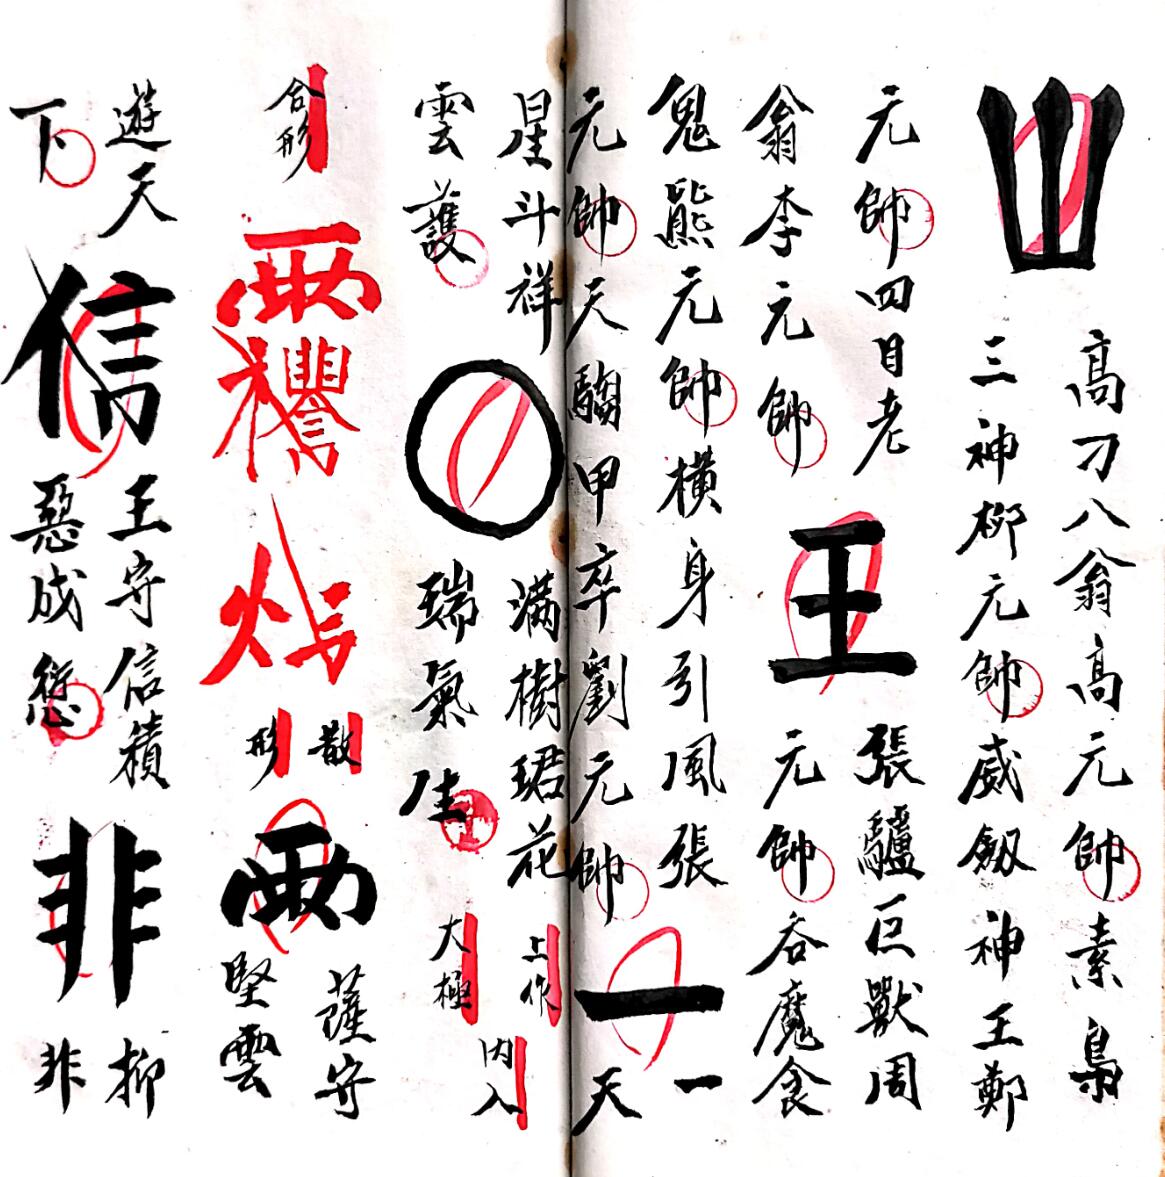 山
高刁八翁高元帥素梟
三神柳元帥威劔神王鄭
元帥四目老
翁李元帥
王
張驢巨獸周
元帥吞魔食
鬼熊元帥橫身引風張
元帥天騶甲卒劉元帥
一
一
天
星斗祥
雲護
〇
滿樹珺花
瑞氣生
上作
大極
內入
合形
散
形
薩守
堅雲
遊天
下
信
王守信積
惡成愆
非
柳
非